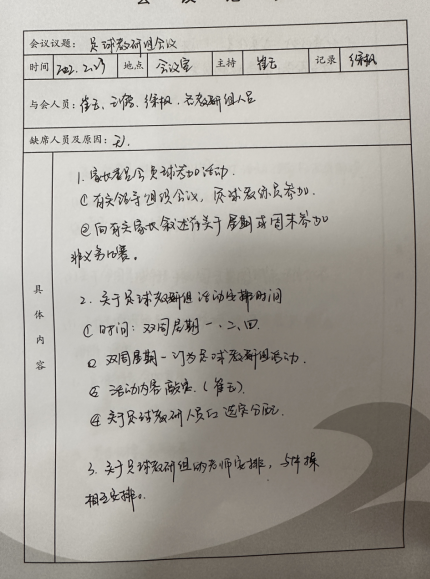 会议议题：足球教研组会议
时间 2022.2.23 地点 会议室 主持 崔云 记录 徐枫
与会人员：崔云、徐枫、教研组人员
缺席人员及原因：无.
具体内容
1. 足球参加活动.
① 有关领导组织会议，足球教练员参加.
② 向有关家长叙述有关于星期或周末参加
比赛。
2. 关于足球教研组活动安排时间
① 时间：双周星期一、二、四.
② 双周星期一订为足球教研组活动.
③ 活动内容(崔云).
④ 关于足球教研人员分配.
3. 关于足球教研组的老师安排，与
相互安排。